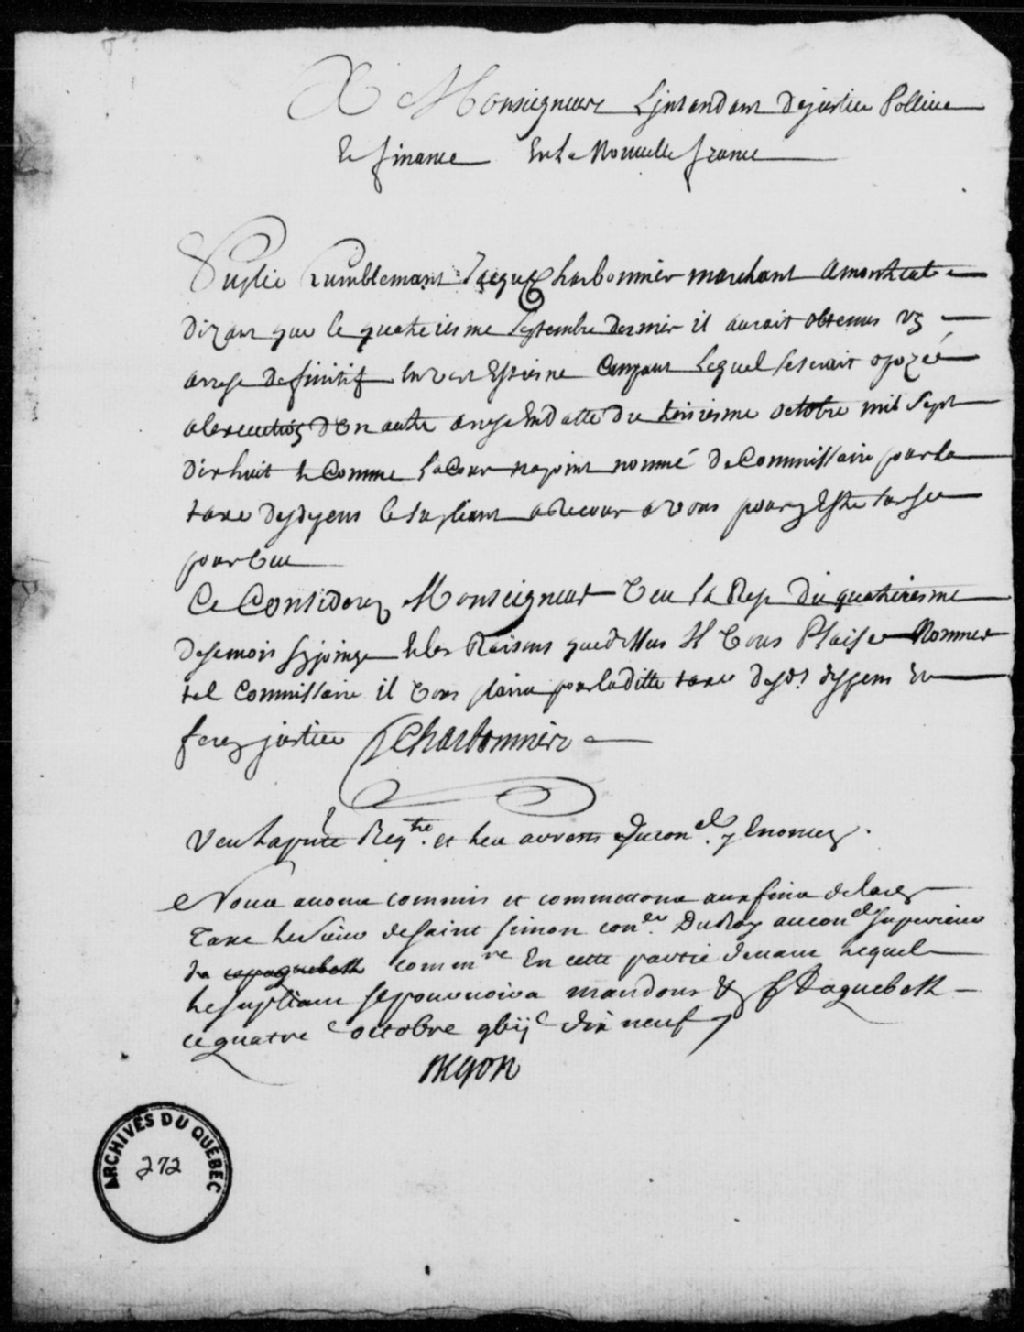 A Monseigneur Lintendant Dejustice Pollice
Et finance En La Nouvelle france
Suplie humblement Jacque Charbonnier marchant a montreal
Dizant que le quatriesme septembre dernier il auroit obtenus un
arrest Definitif Envers Estienne Campaut Lequel se seroit opozé
a lexecution D'Un autre arrest En datte du troisiesme octobre mil sept
Dix huit Et Comme La Cour na point nommé de Commissaire pour la
taxe desdepens le supliant a Recour a vous pour y Estre
pourveu
Ce Consideré Monseigneur Veu la Rest Du quatriesme
dese mois sy joint Et les Raisons que dessus Il Vous Plaise Nommer
tel Commissaire il Vous plaira pour laditte taxe desds depens Et
ferez justice JCharbonnier
Veu la pnte Reqte et
Nous avons commis et commettons aux fins de lade
Taxe le sieur de saint simon conr Du Roy au conel superieur
de comm re En cette partie devant lequel
le supliant se pourvoira mandons & f a quebek
ce quatre octobre gbijc dix neuf
Begon
ARCHIVES DU QUÉBEC
272